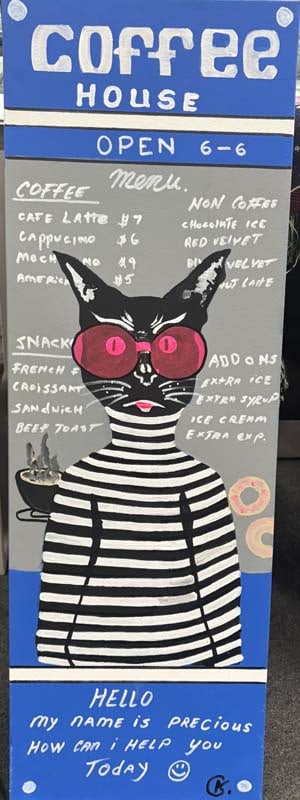 Coffee
HOUSE
OPEN 6-6
Menu.
COFFEE
CAFE Latte $7
Cappucino $6
$9
$5
NON COFFEE
CHOCOLATE ICE
RED VELVET
VELVET
LATTE
SNACK
FRENCH
CROISSANT
SANDWICH
BEEF TOAST
ADD ONS
EXTRA ICE
EXTRA SYRUP
ICE CREAM
EXTRA EXP.
HELLO
MY NAME IS PRECIOUS
HOW CAN I HELP YOU
TODAY